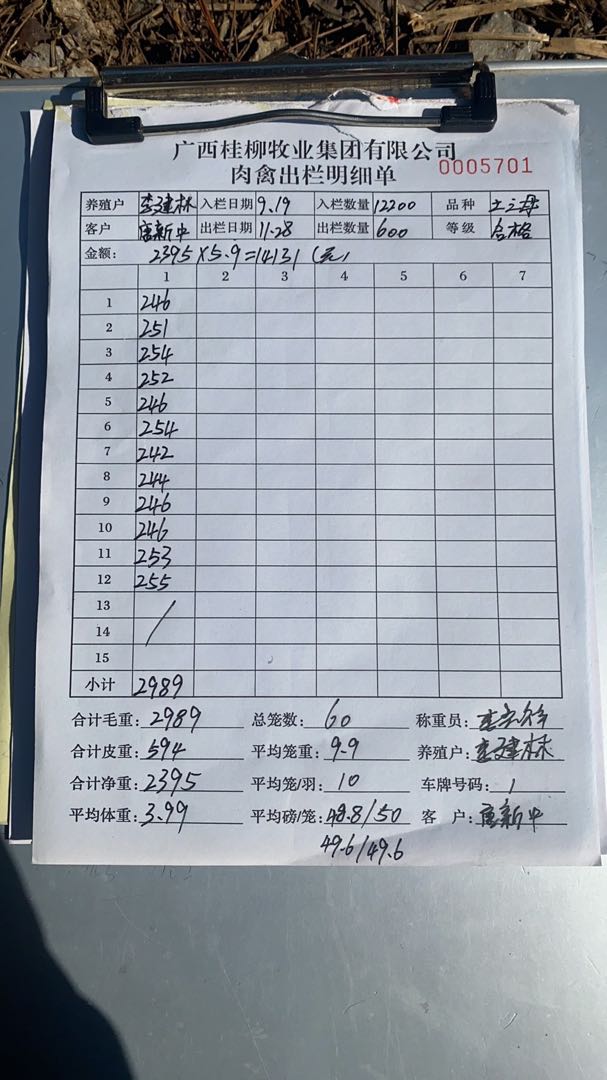 广西桂柳牧业集团有限公司
肉禽出栏明细单 0005701
养殖户 李建林 入栏日期 9.19 入栏数量 12200 品种 土之母
客户 唐新中 出栏日期 11.28 出栏数量 600 等级 合格
金额: 2395×5.9=14131(元)
1 2 3 4 5 6 7
1 246
2 251
3 254
4 252
5 246
6 254
7 242
8 244
9 246
10 246
11 253
12 255
13
14 /
15
小计 2989
合计毛重: 2989 总笼数: 60 称重员:
合计皮重: 594 平均笼重: 9.9 养殖户: 李建林
合计净重: 2395 平均笼/羽: 10 车牌号码: 1
平均体重: 3.99 平均磅/笼: 48.8/50 客户: 唐新中
49.6/49.6